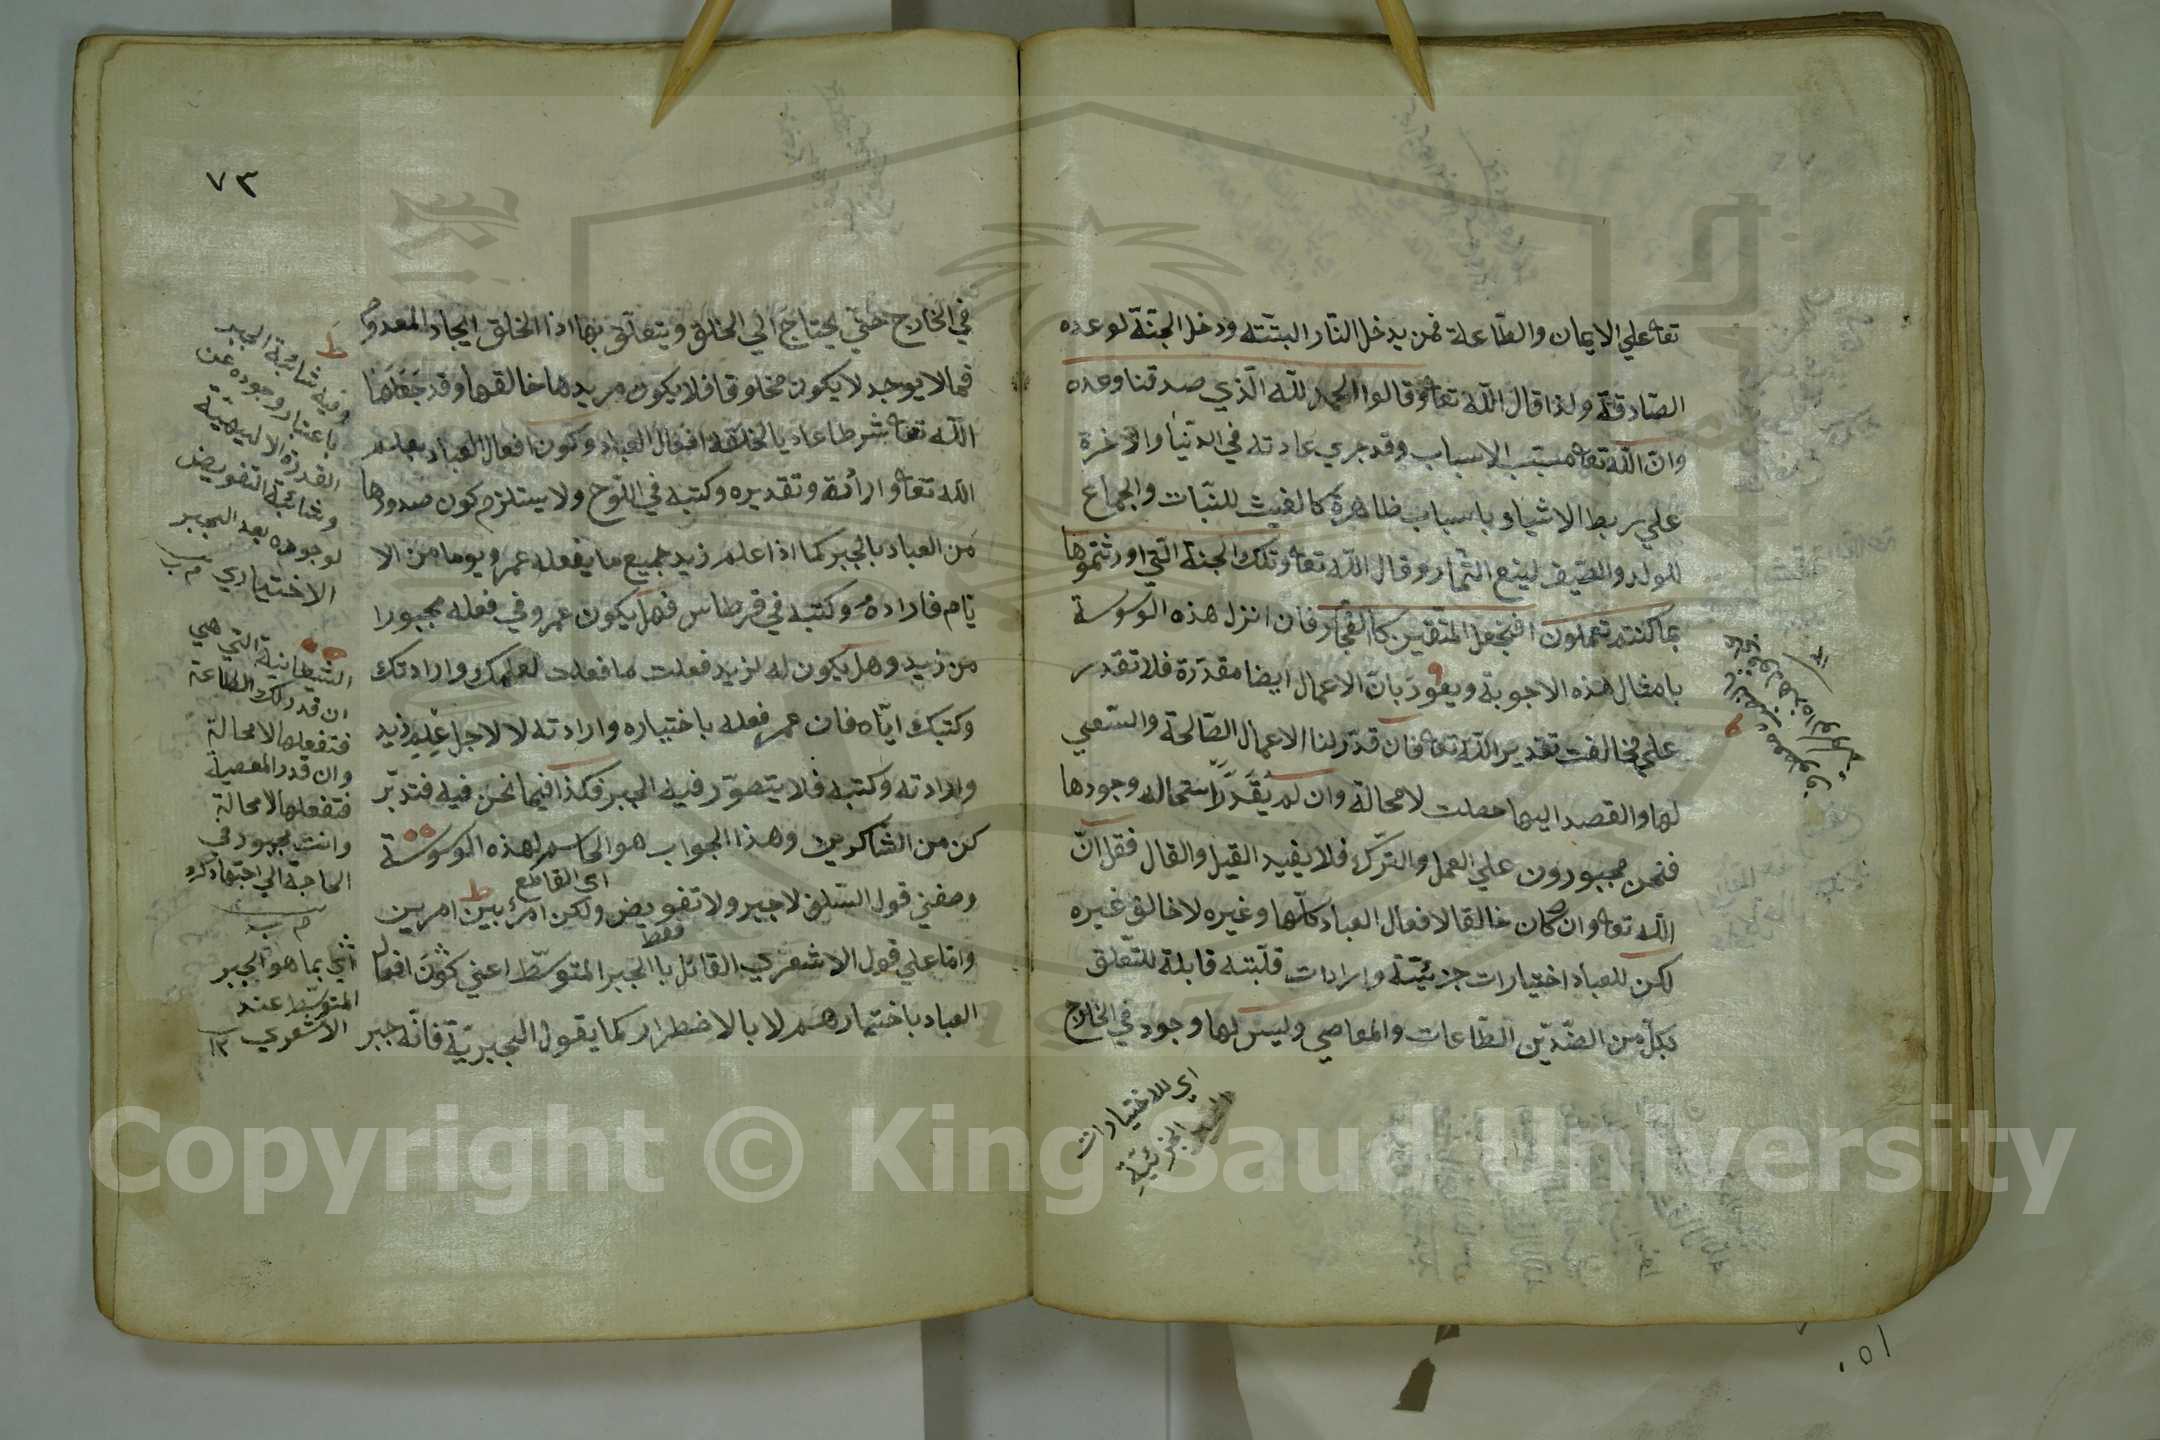 تعا علي الايمان والطّاعة فمن يدخل النّار البتّته ودخل الجنّة لوعده
الصّادقة ولذا قال اللّه تعا وقالوا الحمد للّه الّذي صدقنا وعده
وانّ اللّه تعا مسبّب الاسباب وقد جري عادته في الدّنيا والآخرة
علي ربط الاشياء باسباب ظاهرة كالغيث للنّبات والجماع
للولد والصّيف لينع الثّمار وقال اللّه تعا وتلك الجنة الّتي اورثتموها
بما كنتم تعملون افنجعل المتّقين كالفجّار فان انزل هذه الوسوسة
بامثال هذه الاجوبة ويعود بانّ الاعمال ايضا مقدّرة فلا تقدر
علي مخالفت تقدير اللّه تعا فان قدّر لنا الاعمال الصّالحة والسّعي
لها والقصد اليها حصلت لا محالة وان لم يُقَدَّر استحال وجودها
فنحن مجبورون علي العمل والتّرك فلا يفيد القيل والقال فقل انّ
اللّه تعا وان كان خالقا لافعال العباد كلّها وغيره لا خالق غيره
لكن للعباد اختيارات جزئيّة وارادات قلبيّه قابلة للتّعلق
بكلّ من الضّدّين الطّاعات والمعاصي وليس لها وجود في الخارج
اي للاختيارات
الجزئيّة
٧٣
في الخارج حتّي يحتاج الي الخلق ويتعلّق بها اذ الخلق ايجاد المعدوم
فما لا يوجد لا يكون مخلوقا فلا يكون مريدها خالقها وقد جَعَلَها
اللّه تعا شرطا عاديا لخلقه افعال العباد وكون افعال العباد بعلم
اللّه تعا وارادته وتقديره وكتبه في اللّوح ولا يستلزم كون صدورها
من العباد بالجبر كما اذا علم زيد جميع ما يفعله عمرو يوما من الا
يّام فاراده وكتبه في قرطاس فهل يكون عمرو في فعله مجبورا
من زيد وهل يكون له لزيد فعلت ما فعلت لعلمك وارادتك
وكتبك ايّاه فان عمر فعله باختياره وارادته لا لاجل عِلم زيد
وارادته وكتبه فلا يتصوّر فيه الجبر فكذا فيما نحن فيه فتدبّر
كن من الشاكرين وهذا الجواب هو الحاسم لهذه الوسوسة
اي القاطع
وصفني قول السّلف لا جبر ولا تفويض ولكن امر بين امرين
فقط
وامّا علي قول الاشعري القائل با الجبر المتوسّط اعني كوْنَ افعال
العباد باختيارهم لا بالاضطرار كما يقول الجبريّة فانّه جبر
ط
وفيه شائبة الجبر
باعتبار وجوده عن
القدرة الالهيّة
وشائبة التفويض
لوجوده بعد الجبر
الاختياري
الشيطانية التي هي
ان قدر لك الطاعة
فتفعلها لا محالة
وان قدر المعصية
فتفعلها لا محالة
وانت مجبور في
الحاجة الي اجتهادك
اي بما هو الجبر
المتوسّط عند
الاشعري
١٢
Copyright © King Saud University